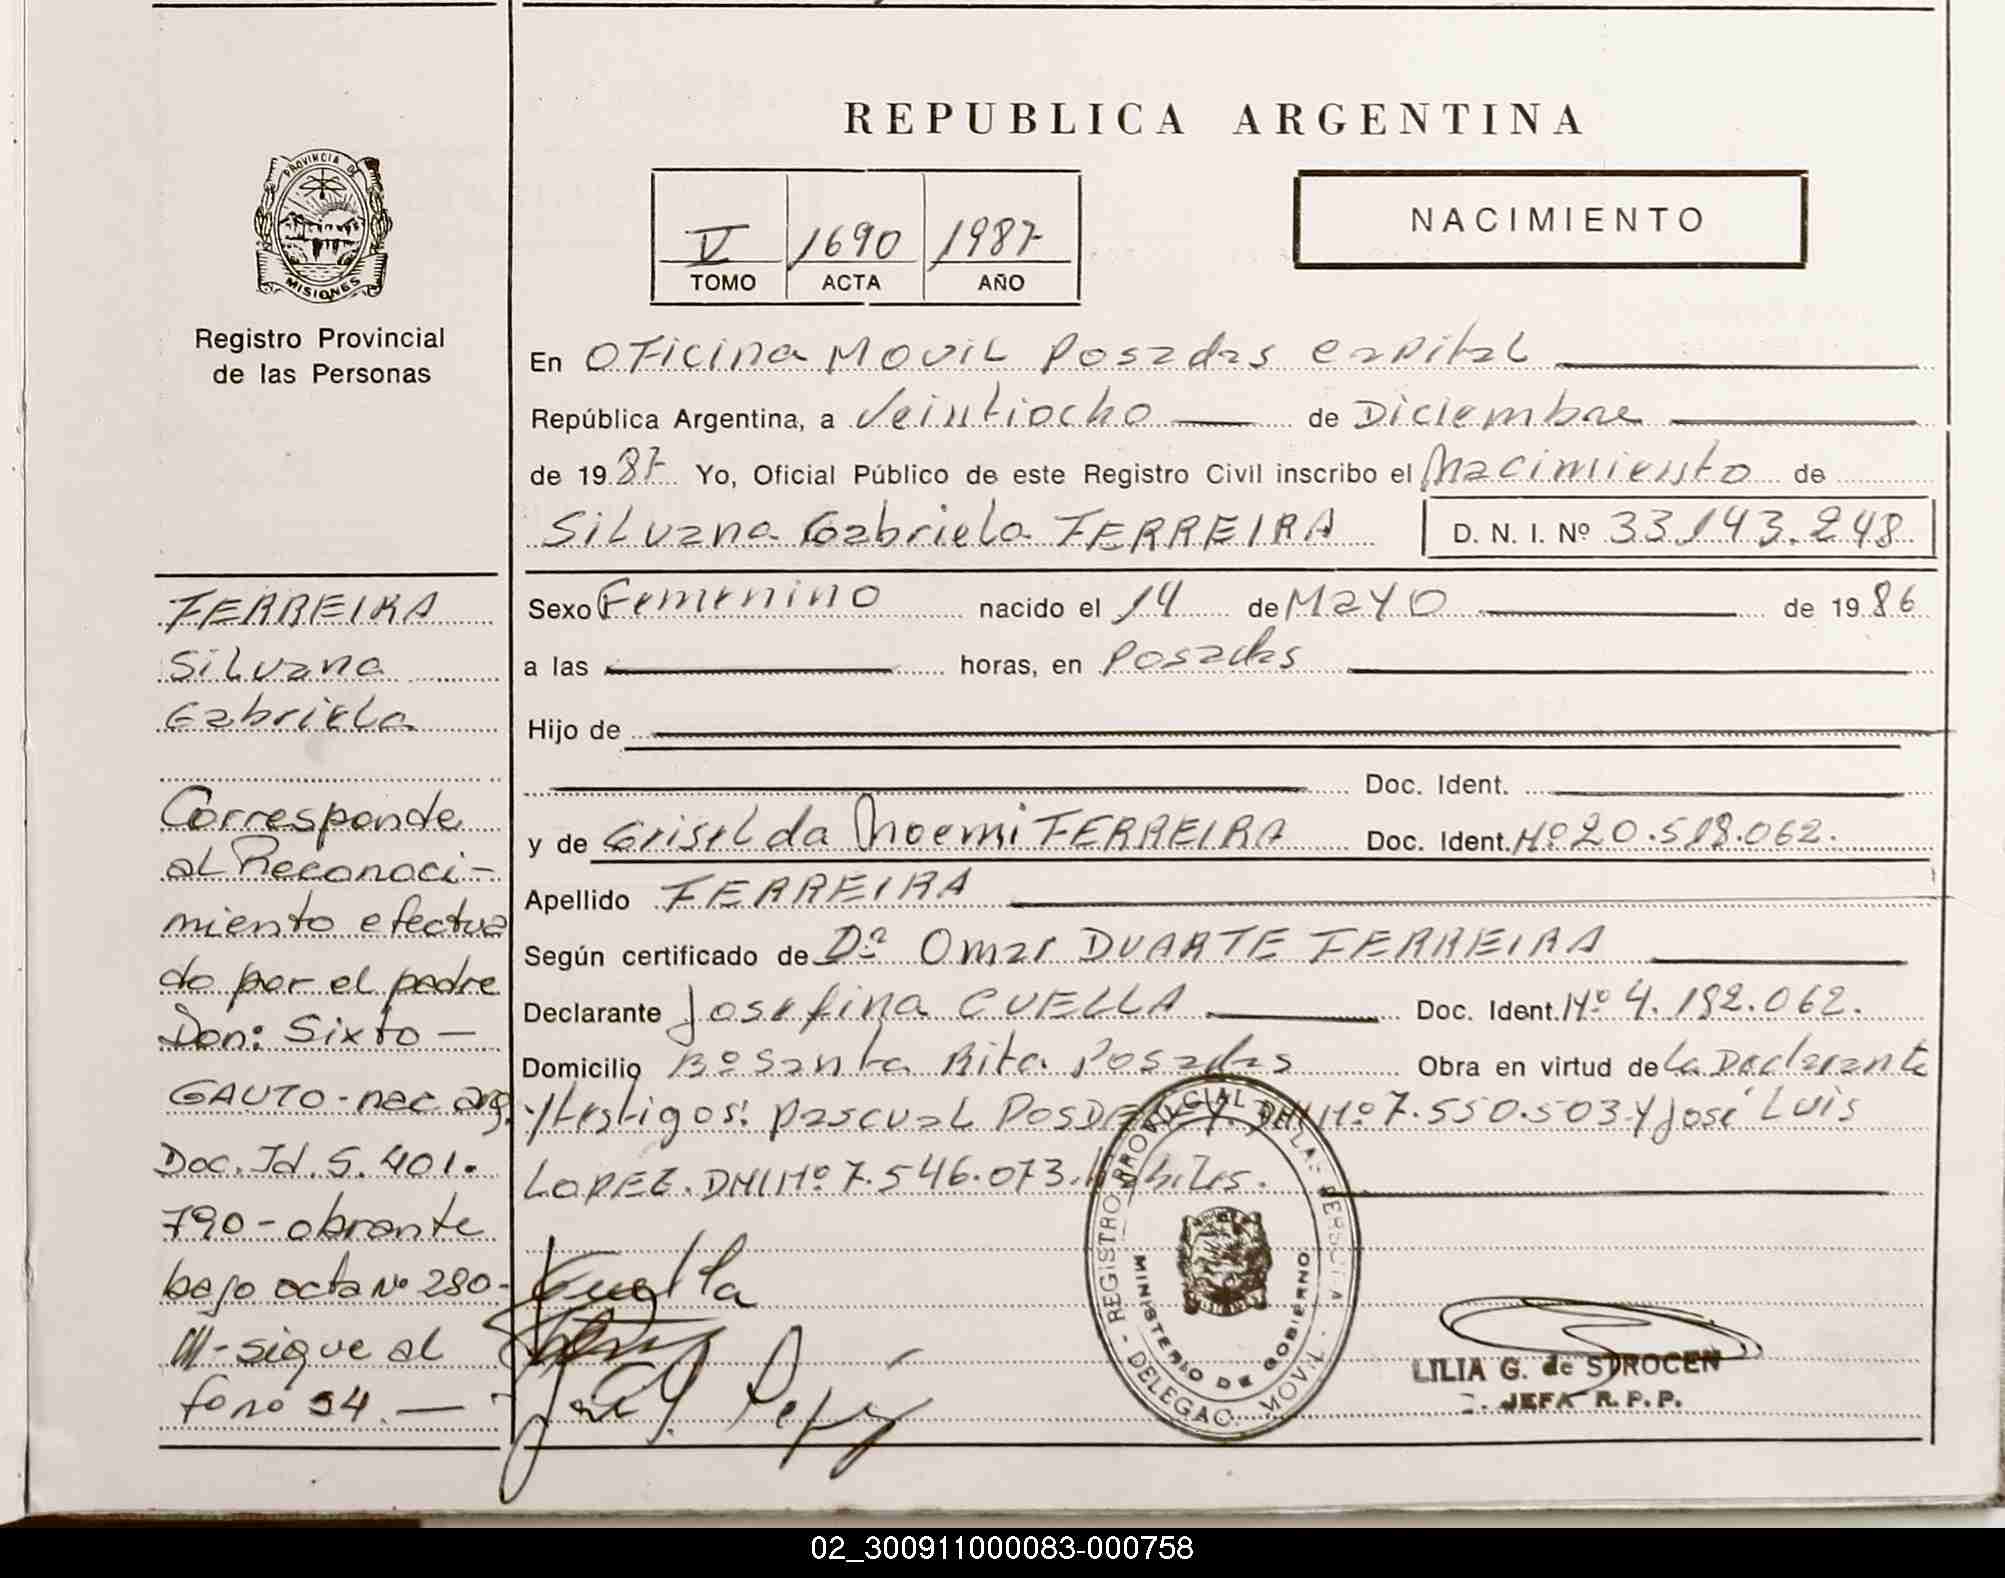 REPUBLICA ARGENTINA
PROVINCIA DE
MISIONES
Registro Provincial
de las Personas
V 1690 1987
TOMO ACTA AÑO
NACIMIENTO
En Oficina Movil Posadas capital
República Argentina, a Veintiocho de Diciembre
de 1987 Yo, Oficial Público de este Registro Civil inscribo el Nacimiento de
Silvana Gabriela FERREIRA D. N. I. Nº 33.143.248
Sexo Femenino nacido el 14 de Mayo de 1986
a las horas, en Posadas
Hijo de
Doc. Ident.
y de Griselda Noemi FERREIRA Doc. Ident. Nº 20.518.062.
Apellido FERREIRA
Según certificado de Dº Omar DUARTE FERREIRA
Declarante Josefina CUELLA Doc. Ident. Nº 4.192.062.
Domicilio Bº Santa Rita Posadas Obra en virtud de La Declarante
y testigos: Pascual DNI Nº 7.550.503 y José Luis
LOPEZ. DNI Nº 7.546.073. Habiles.
FERREIRA
Silvana
Gabriela
Corresponde
al Reconoci-
miento efectua
do por el padre
Don: Sixto -
GAUTO - nac arg.
Doc. Id. 5.401.
790 - obrante
bajo acta Nº 280-
III - sigue al
fono 34. —
Cuella
REGISTRO PROVINCIAL DE LAS PERSONAS
MINISTERIO DE GOBIERNO
- DELEGAC. MOVIL -
LILIA G. de STROCEN
JEFA R. P. P.
02_300911000083-000758